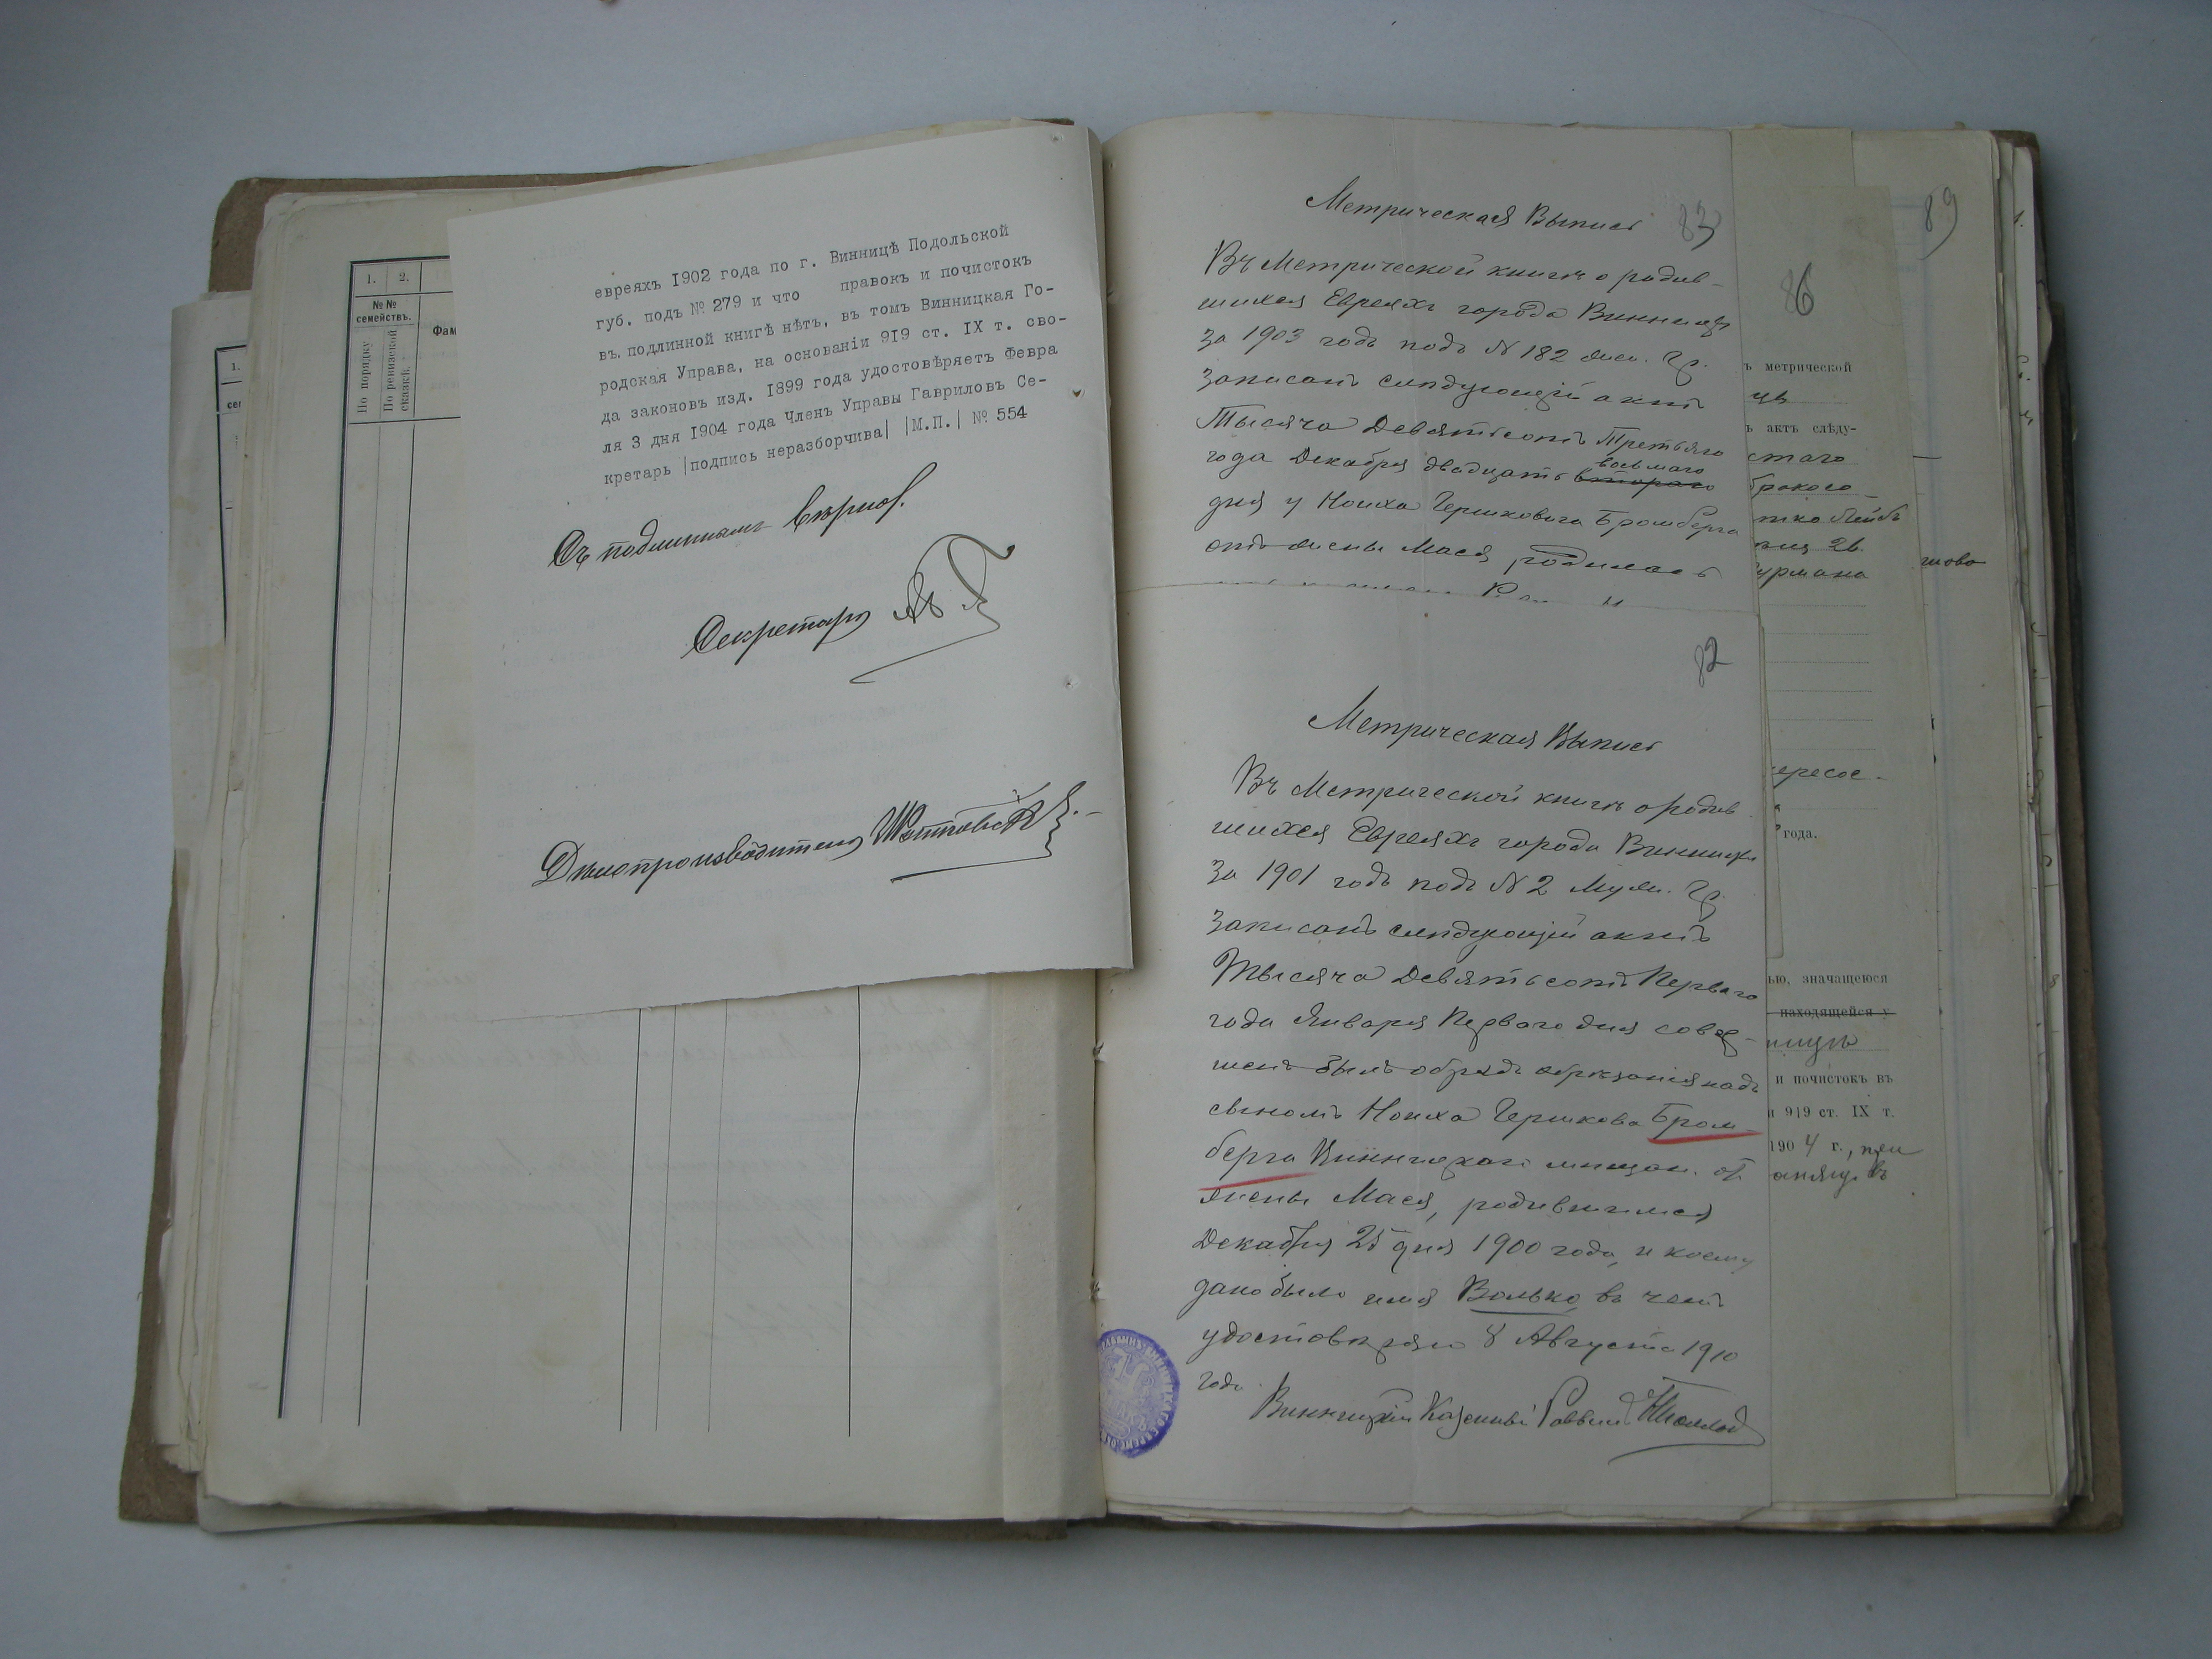 1. 2.
№№
семействъ.
По порядку
По ревизской
сказкѣ.
Фам
1.
сем
евреяхъ 1902 года по г. Винницѣ Подольской
губ. подъ № 279 и что правокъ и почистокъ
въ подлинной книгѣ нѣтъ, въ томъ Винницкая Го-
родская Управа, на основаніи 919 ст. IX т. сво-
да законовъ изд. 1899 года удостовѣряетъ Февра
ля 3 дня 1904 года Членъ Управы Гавриловъ Се-
кретарь |подпись неразборчива| |М.П.| № 554
Съ подлиннымъ вѣрно.
Секретарь
Дѣлопроизводитель
83
Метрическая Выпись
Въ Метрической книгѣ о родив-
шихся Евреяхъ города Винницы
за 1903 годъ подъ N 182 жен. гр.
записанъ слѣдующій актъ
Тысяча Девятьсотъ Третьяго
года Декабря двадцать второго восьмаго
дня у Ноиха Гершковича Бромберга
отъ жены Мася, родилась
82
Метрическая Выпись
Въ Метрической книгѣ о родив
шихся Евреяхъ города Винницы
за 1901 годъ подъ N 2 муж. гр.
записанъ слѣдующій актъ
Тысяча Девятьсотъ Перваго
года Января Перваго дня совер-
шенъ былъ обрядъ обрѣзанія надъ
сыномъ Ноиха Гершкова Бром-
берга Винницкаго мѣщан. отъ
жены Мася, родившимся
Декабря 25 дня 1900 года, и коему
дано было имя Волько въ чемъ
удостовѣряю 8 Августа 1910
года.
Винницкій Казенный Раввинъ
86
ъ метрической
цѣ
ъ актъ слѣду-
стаго
урмана
года.
ью, значащеюся
находящейся у
и почистокъ въ
и 919 ст. IX т.
1904 г.,
89